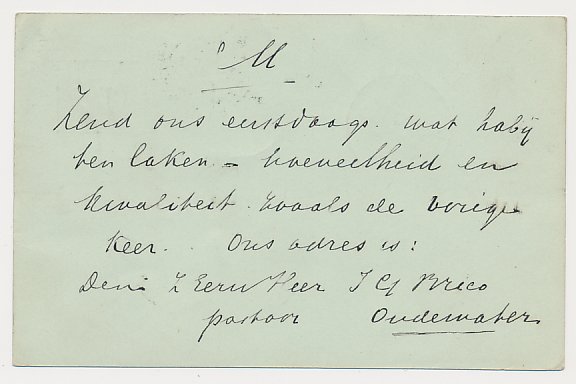 M
Zend ons eerstdaags wat habij
ten laken - hoeveelheid en
kwaliteit zooals de vorige
keer. Ons adres is:
Den Z Eerw Heer J G Brico
pastoor Oudewater